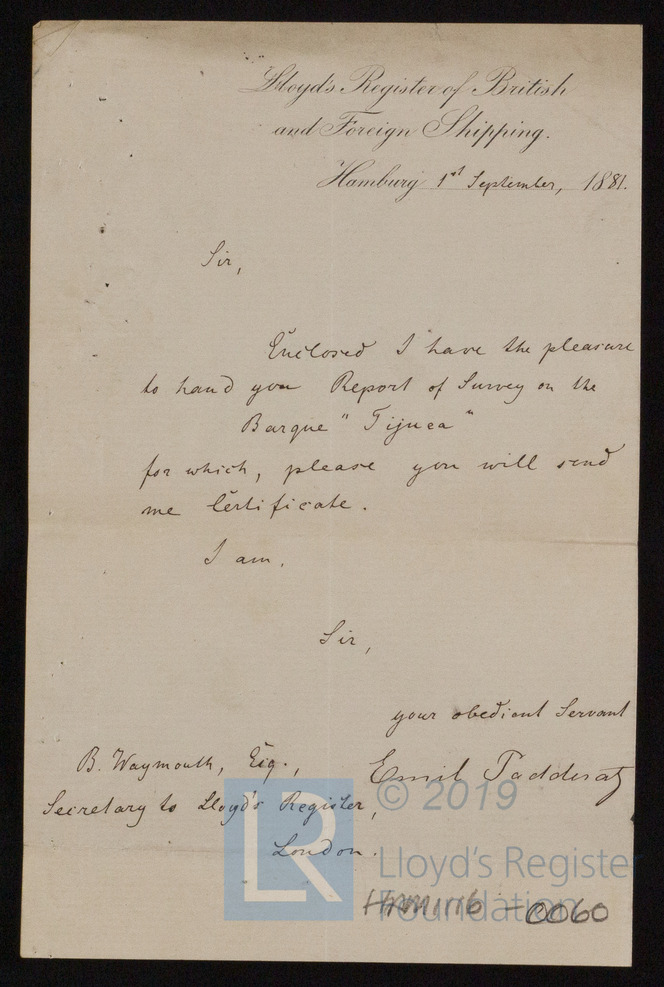 Lloyd's Register of British
and Foreign Shipping.
Hamburg 1st September, 1881.
Sir,
Enclosed I have the pleasure
to hand you Report of Survey on the
Barque "Tijuca"
for which, please you will send
me Certificate.
I am,
Sir,
your obedient Servant
B. Waymouth, Esq.,
Emil Padderatz
Secretary to Lloyd's Register,
London.
LR
© 2019
Lloyd's Register
Foundation
HAM1116-0060